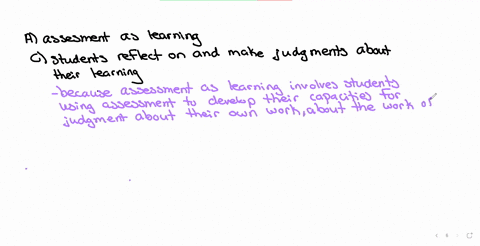 A) assesment as learning
C) students reflect on and make judgments about
their learning
-because assessment as learning involves students
using assessment to develop their capacities for
judgment about their own work, about the work of